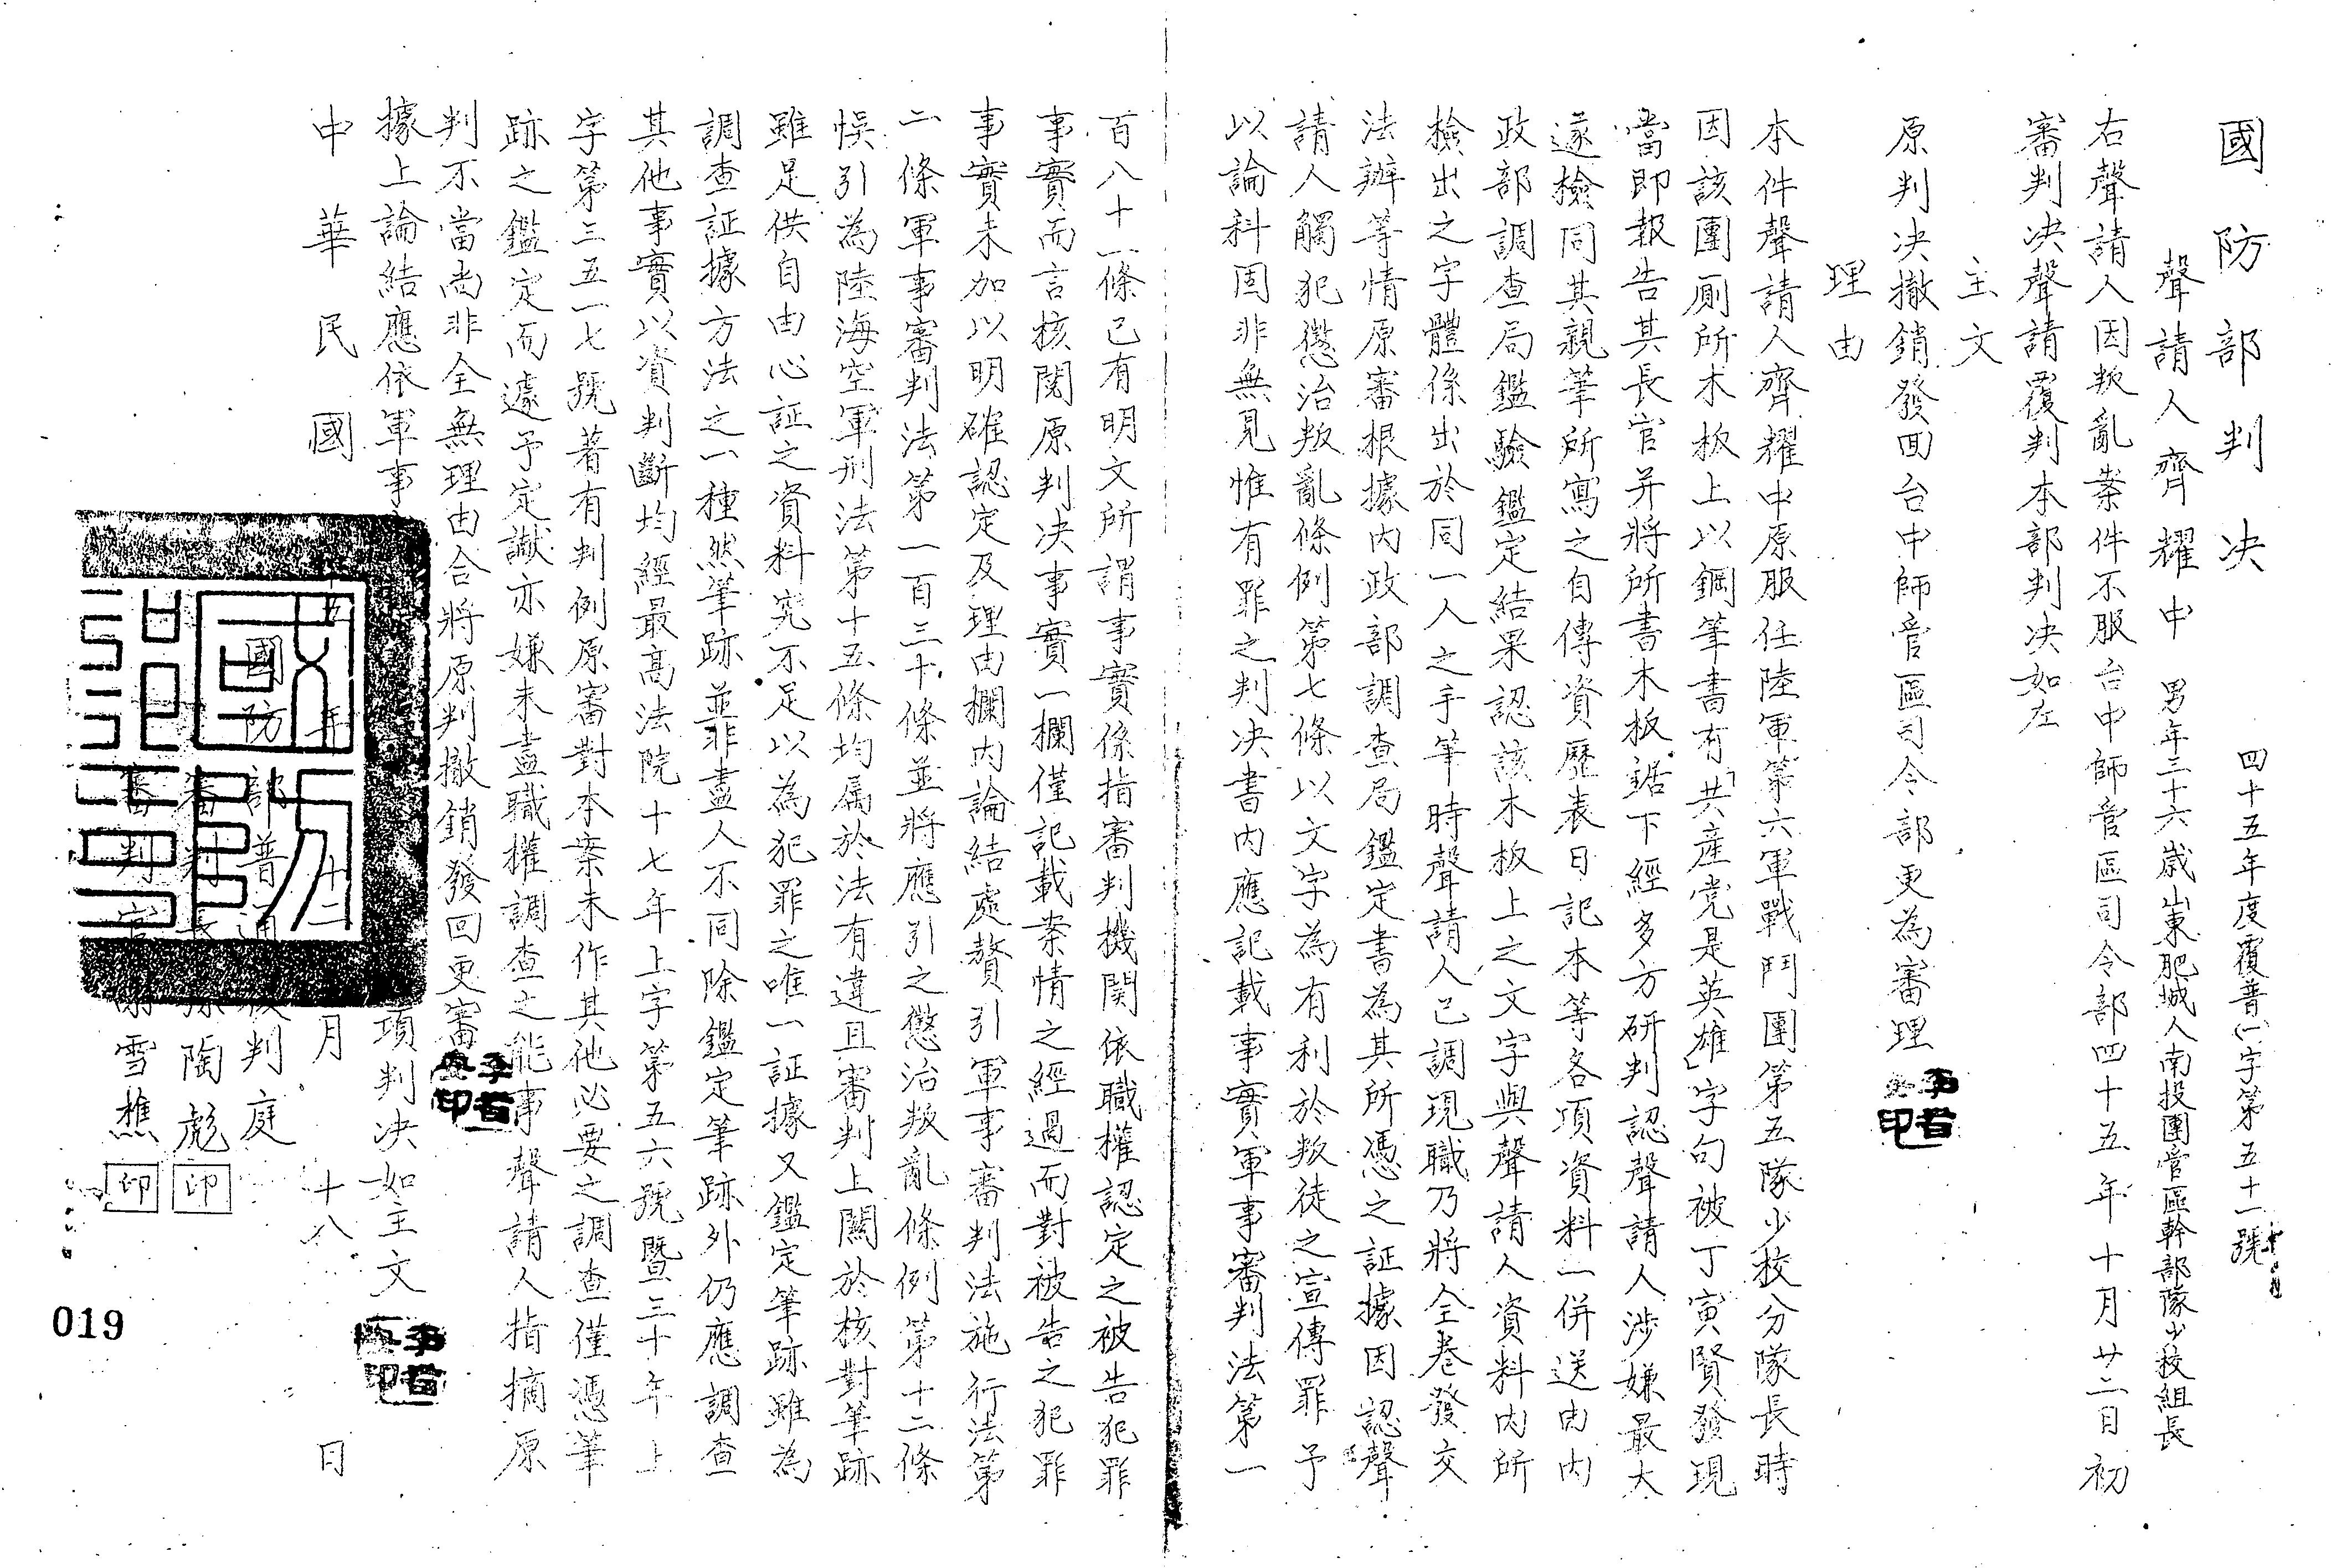 國防部判决
四十五年度覆普(一)字第五十一號
聲請人齊耀中 男年三十六歲山東肥城人南投團管區幹部隊少校組長
右聲請人因叛亂案件不服台中師管區司令部四十五年十月廿二日初
審判决聲請覆判本部判决如左
主文
原判决撤銷發回台中師管區司令部更為審理
理由
本件聲請人齊耀中原服任陸軍第六軍戰鬥團第五隊少校分隊長時
因該團厠所木板上以鋼筆書有「共產党是英雄」字句被丁寅賢發現
當即報告其長官并將所書木板鋸下經多方研判認聲請人涉嫌最大
遂檢同其親筆所寫之自傳資歷表日記本等各項資料一併送由内
政部調查局鑑驗鑑定結果認該木板上之文字與聲請人資料内所
檢出之字體係出於同一人之手筆時聲請人已調現職乃將全卷發交
法辦等情原審根據内政部調查局鑑定書為其所憑之証據因認聲
請人觸犯懲治叛亂條例第七條以文字為有利於叛徒之宣傳罪予
以論科固非無見惟有罪之判决書内應記載事實軍事審判法第一
百八十一條已有明文所謂事實係指審判機関依職權認定之被告犯罪
事實而言核閱原判决事實一欄僅記載案情之經過而對被告之犯罪
事實未加以明確認定及理由欄内論結處贅引軍事審判法施行法第
二條軍事審判法第一百三十條並將應引之懲治叛亂條例第十二條
悞引為陸海空軍刑法第十五條均属於法有違且審判上關於核對筆跡
雖足供自由心証之資料究不足以為犯罪之唯一証據又鑑定筆跡雖為
調查証據方法之一種然筆跡並非盡人不同除鑑定筆跡外仍應調查
其他事實以資判斷均經最高法院十七年上字第五六號暨三十年上
字第三五一七號著有判例原審對本案未作其他必要之調查僅憑筆
跡之鑑定而遽予定讞亦嫌未盡職權調查之能事聲請人指摘原
判不當尚非全無理由合將原判撤銷發回更審
據上論結應依軍事項判决如主文
中華民國五年十二月十八日
國防部普通覆判庭
審判長 陶彪 印
審判官 雪樵 印
019